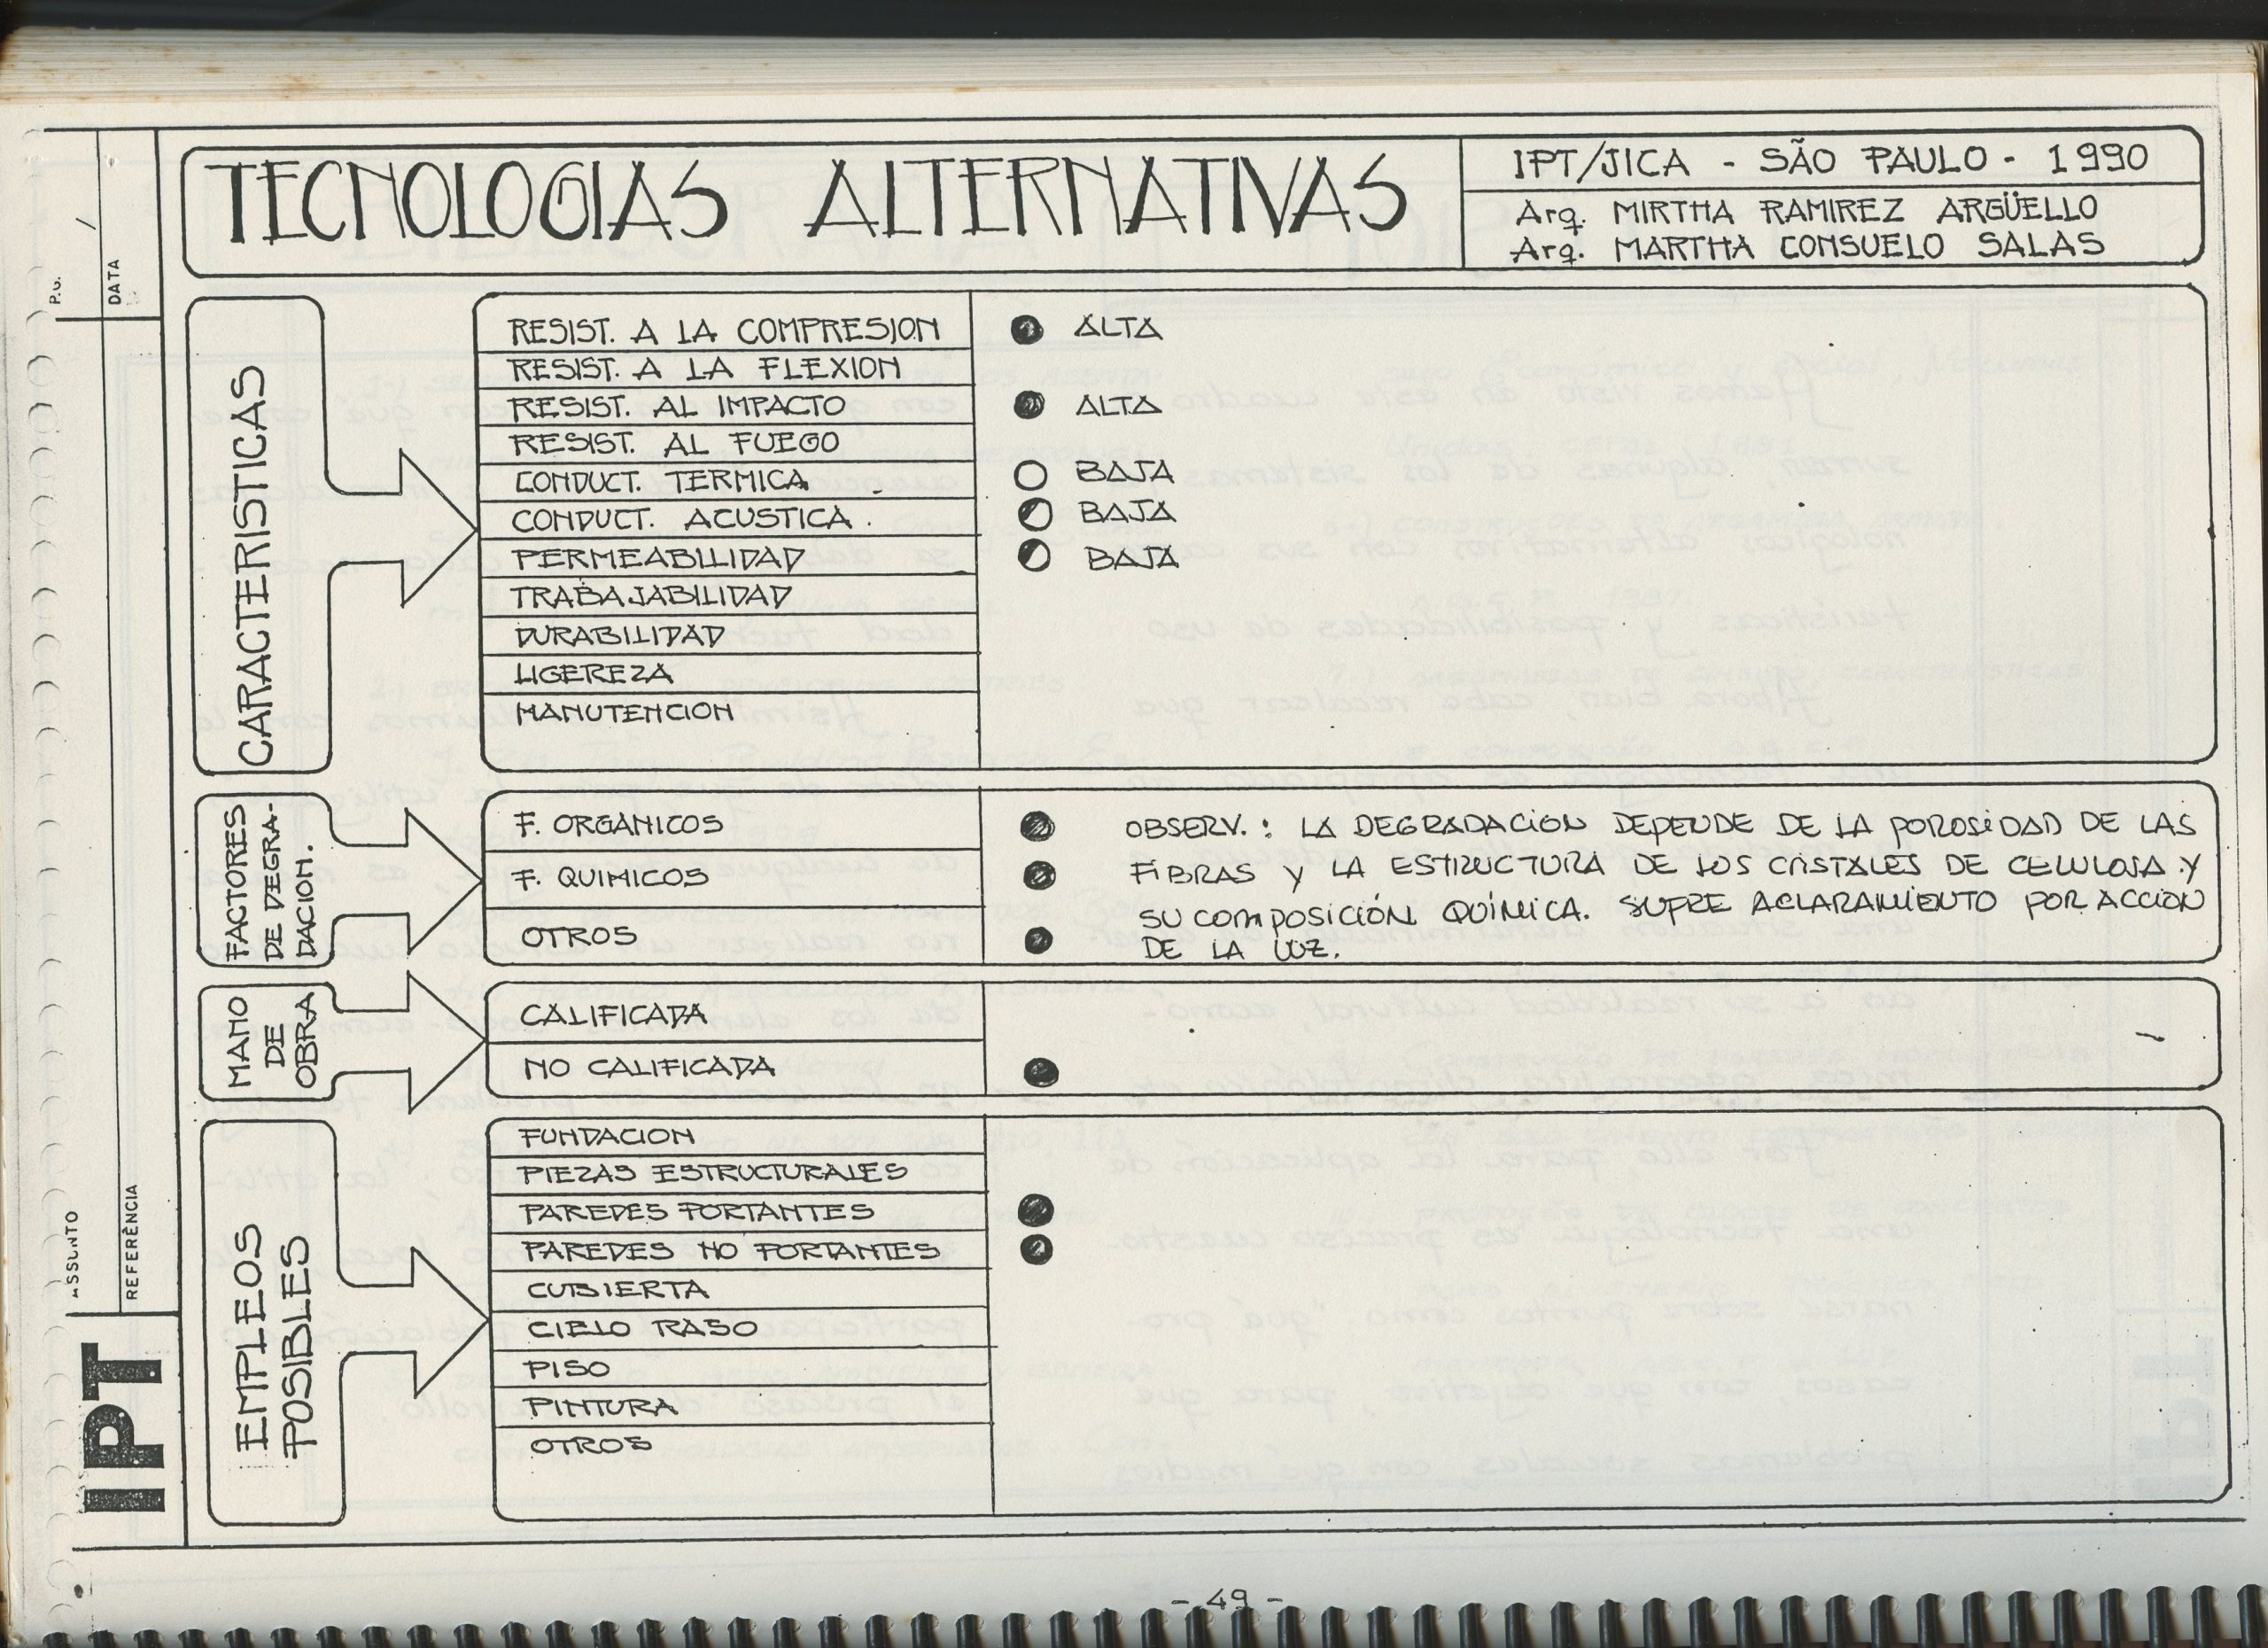 TECNOLOGIAS ALTERNATIVAS
IPT/JICA - SÃO PAULO - 1990
Arq. MIRTHA RAMIREZ ARGÜELLO
Arq. MARTHA CONSUELO SALAS
P.U.
DATA
CARACTERISTICAS
RESIST. A LA COMPRESION ALTA
RESIST. A LA FLEXION
RESIST. AL IMPACTO ALTA
RESIST. AL FUEGO
CONDUCT. TERMICA BAJA
CONDUCT. ACUSTICA. BAJA
PERMEABILIDAD BAJA
TRABAJABILIDAD
DURABILIDAD
LIGEREZA
MANUTENCION
FACTORES
DE DEGRA-
DACION.
F. ORGANICOS
F. QUIMICOS
OTROS
OBSERV.: LA DEGRADACION DEPENDE DE LA POROSIDAD DE LAS
FIBRAS Y LA ESTRUCTURA DE LOS CRISTALES DE CELULOSA Y
SU COMPOSICIÓN QUÍMICA. SUFRE ACLARAMIENTO POR ACCION
DE LA LUZ.
MANO
DE
OBRA
CALIFICADA
NO CALIFICADA
EMPLEOS
POSIBLES
FUNDACION
PIEZAS ESTRUCTURALES
PAREDES PORTANTES
PAREDES NO PORTANTES
CUBIERTA
CIELO RASO
PISO
PINTURA
OTROS
ASSUNTO
REFERÊNCIA
IPT
- 49 -